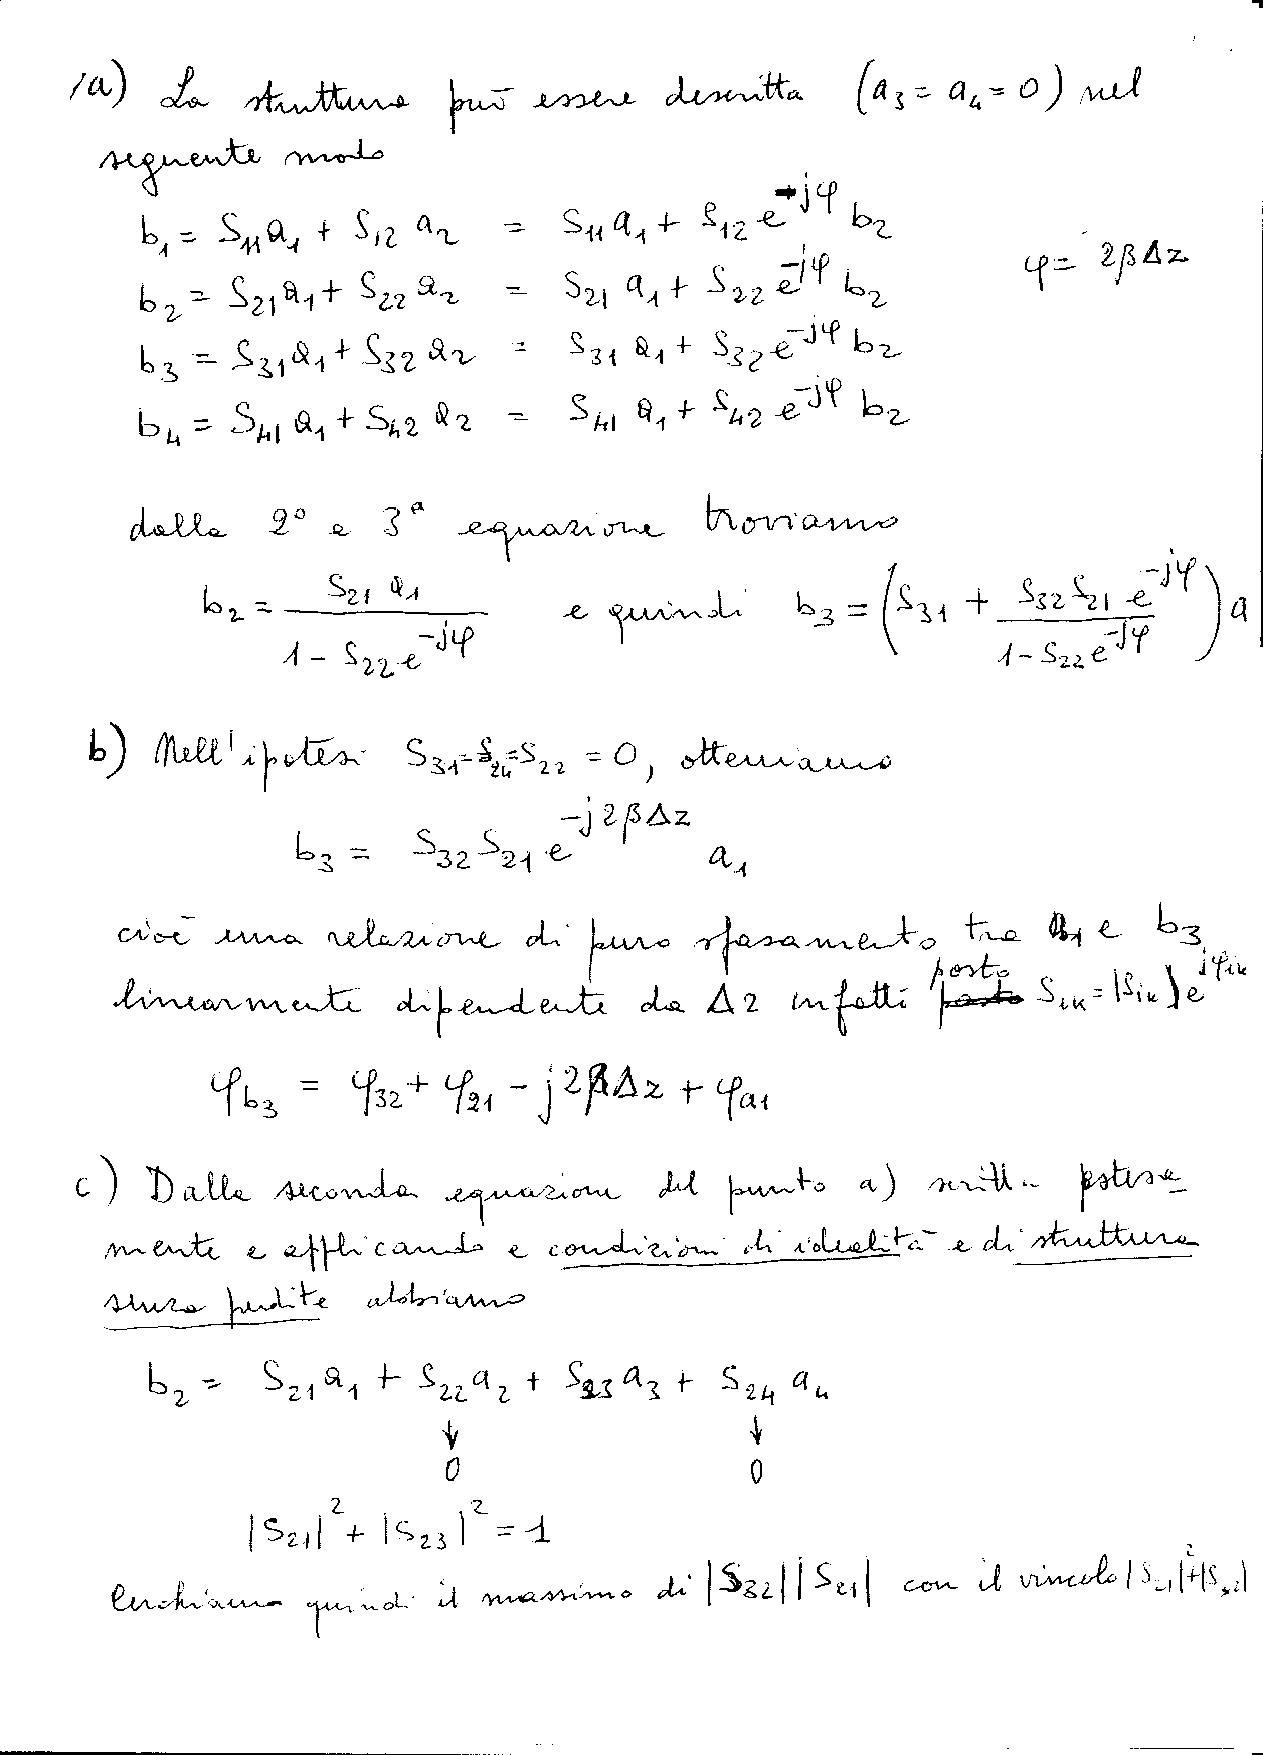 1a) La struttura può essere descritta (a₃ = a₄ = 0) nel
seguente modo
b₁ = S₁₁a₁ + S₁₂ a₂ = S₁₁a₁ + S₁₂ e^{-jφ} b₂
φ = 2βΔz
b₂ = S₂₁a₁ + S₂₂ a₂ = S₂₁ a₁ + S₂₂ e^{-jφ} b₂
b₃ = S₃₁a₁ + S₃₂ a₂ = S₃₁ a₁ + S₃₂ e^{-jφ} b₂
b₄ = S₄₁ a₁ + S₄₂ a₂ = S₄₁ a₁ + S₄₂ e^{-jφ} b₂
dalla 2° e 3ª equazione troviamo
b₂ = \frac{S₂₁ a₁}{1 - S₂₂ e^{-jφ}} e quindi b₃ = (S₃₁ + \frac{S₃₂S₂₁ e^{-jφ}}{1 - S₂₂ e^{-jφ}}) a
b) Nell'ipotesi S₃₁ = S₂₄ = S₂₂ = 0, otteniamo
b₃ = S₃₂ S₂₁ e^{-j2βΔz} a₁
cioè una relazione di puro sfasamento tra a₁ e b₃
linearmente dipendente da Δz infatti posto S_{ik} = |S_{ik}| e^{jφ_{ik}}
φ_{b₃} = φ₃₂ + φ₂₁ - j2βΔz + φ_{a1}
c) Dalla seconda equazione del punto a) scritta estesa
mente e applicando e condizioni di idealità e di struttura
senza perdite abbiamo
b₂ = S₂₁a₁ + S₂₂a₂ + S₂₃a₃ + S₂₄ a₄
↓ ↓
0 0
|S₂₁|² + |S₂₃|² = 1
Cerchiamo quindi il massimo di |S₃₂||S₂₁| con il vincolo |S₂₁|²+|S₃₂|